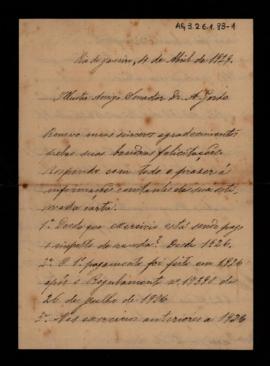 AG.3.2.6.1.93-1
Rio de Janeiro, 4 de Abril de 1929.
Illustre Amigo Senador Dr. A. Gordo
Renovo meus sinceros agradecimentos
pelas suas bondosas felicitações.
Respondo com todo o prazer á
informações constantes da sua esti-
mada carta.
1º Desde que exercicio está sendo pago
o imposto de renda? Desde 1926.
2º O 1º pagamento foi feito em 1926
após o Regulamento n. de
26 de Julho de 1926
3º Nos exercicios anteriores a 1926